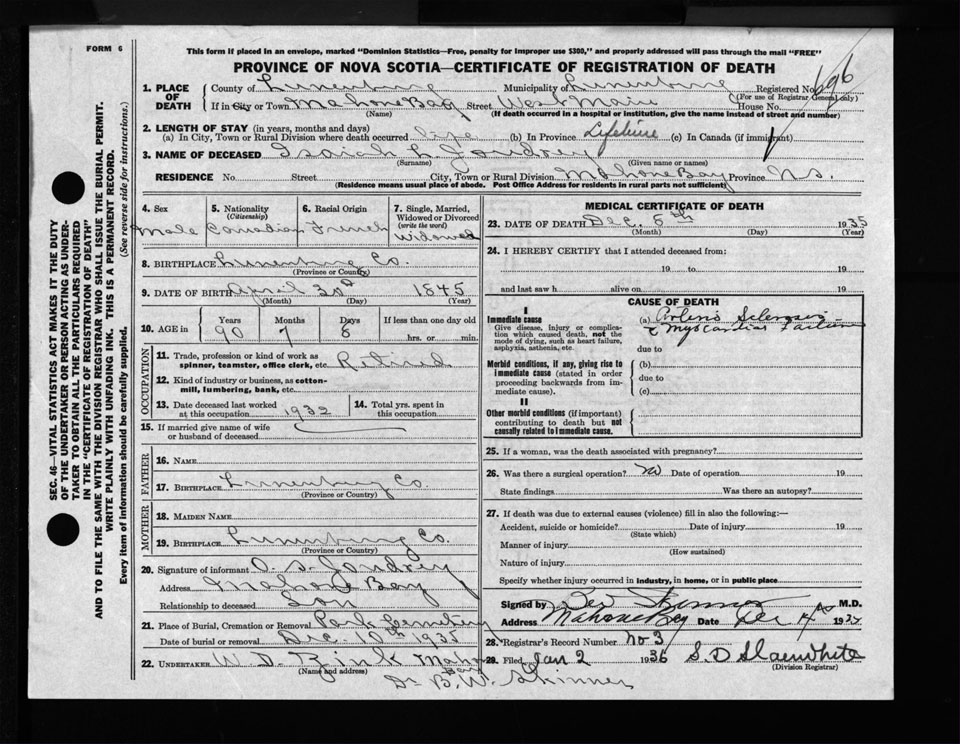 FORM 6
This form if placed in an envelope, marked "Dominion Statistics—Free, penalty for improper use $300," and properly addressed will pass through the mail "FREE"
PROVINCE OF NOVA SCOTIA—CERTIFICATE OF REGISTRATION OF DEATH
SEC. 46—VITAL STATISTICS ACT MAKES IT THE DUTY
OF THE UNDERTAKER OR PERSON ACTING AS UNDER-
TAKER TO OBTAIN ALL THE PARTICULARS REQUIRED
IN THE "CERTIFICATE OF REGISTRATION OF DEATH"
AND TO FILE THE SAME WITH THE DIVISION REGISTRAR WHO SHALL ISSUE THE BURIAL PERMIT.
WRITE PLAINLY WITH UNFADING INK. THIS IS A PERMANENT RECORD.
Every item of information should be carefully supplied. (See reverse side for instructions.)
1. PLACE OF DEATH County of Lunenburg Municipality of Lunenburg Registered No. 696
(For use of Registrar General only)
If in City or Town Mahone Bay Street West Main House No.
(Name) (If death occurred in a hospital or institution, give the name instead of street and number)
2. LENGTH OF STAY (in years, months and days)
(a) In City, Town or Rural Division where death occurred life (b) In Province Lifetime (c) In Canada (if immigrant)
3. NAME OF DECEASED Isaiah L. Joudrey
(Surname) (Given name or names)
RESIDENCE No. Street City, Town or Rural Division Mahone Bay Province N.S.
(Residence means usual place of abode. Post Office Address for residents in rural parts not sufficient)
4. Sex Male
5. Nationality (Citizenship) Canadian
6. Racial Origin French
7. Single, Married, Widowed or Divorced (write the word) Widowed
8. BIRTHPLACE Lunenburg Co.
(Province or County)
9. DATE OF BIRTH April 30th 1845
(Month) (Day) (Year)
10. AGE in Years Months Days If less than one day old
90 7 8 hrs. or min.
OCCUPATION
11. Trade, profession or kind of work as spinner, teamster, office clerk, etc. Retired
12. Kind of industry or business, as cotton-mill, lumbering, bank, etc.
13. Date deceased last worked at this occupation 1932
14. Total yrs. spent in this occupation.
15. If married give name of wife or husband of deceased
FATHER
16. NAME
17. BIRTHPLACE Lunenburg Co.
(Province or County)
MOTHER
18. MAIDEN NAME
19. BIRTHPLACE Lunenburg Co.
(Province or County)
20. Signature of informant O. S. Joudrey
Address Mahone Bay
Relationship to deceased Son
21. Place of Burial, Cremation or Removal Park Cemetery
Date of burial or removal Dec. 10th 1935
22. UNDERTAKER W. D. Zink Mahone Bay
(Name and address)
Dr B. W. Skinner
MEDICAL CERTIFICATE OF DEATH
23. DATE OF DEATH Dec. 8th 1935
(Month) (Day) (Year)
24. I HEREBY CERTIFY that I attended deceased from:
19 to 19
and last saw h alive on 19
CAUSE OF DEATH
I
Immediate cause
Give disease, injury or complication which caused death, not the mode of dying, such as heart failure, asphyxia, asthenia, etc.
(a) Arterio Sclerosis
Myocardial failure
due to
Morbid conditions, if any, giving rise to immediate cause (stated in order proceeding backwards from immediate cause).
(b)
due to
(c)
II
Other morbid conditions (if important) contributing to death but not causally related to immediate cause.
25. If a woman, was the death associated with pregnancy?
26. Was there a surgical operation? No Date of operation 19
State findings Was there an autopsy?
27. If death was due to external causes (violence) fill in also the following:—
Accident, suicide or homicide? Date of injury 19
(State which)
Manner of injury
(How sustained)
Nature of injury
Specify whether injury occurred in industry, in home, or in public place
Signed by Skinner M.D.
Address Mahone Bay Date Dec
28. Registrar's Record Number No 3
29. Filed Jan 2 1936 S. D Slaewhite
(Division Registrar)